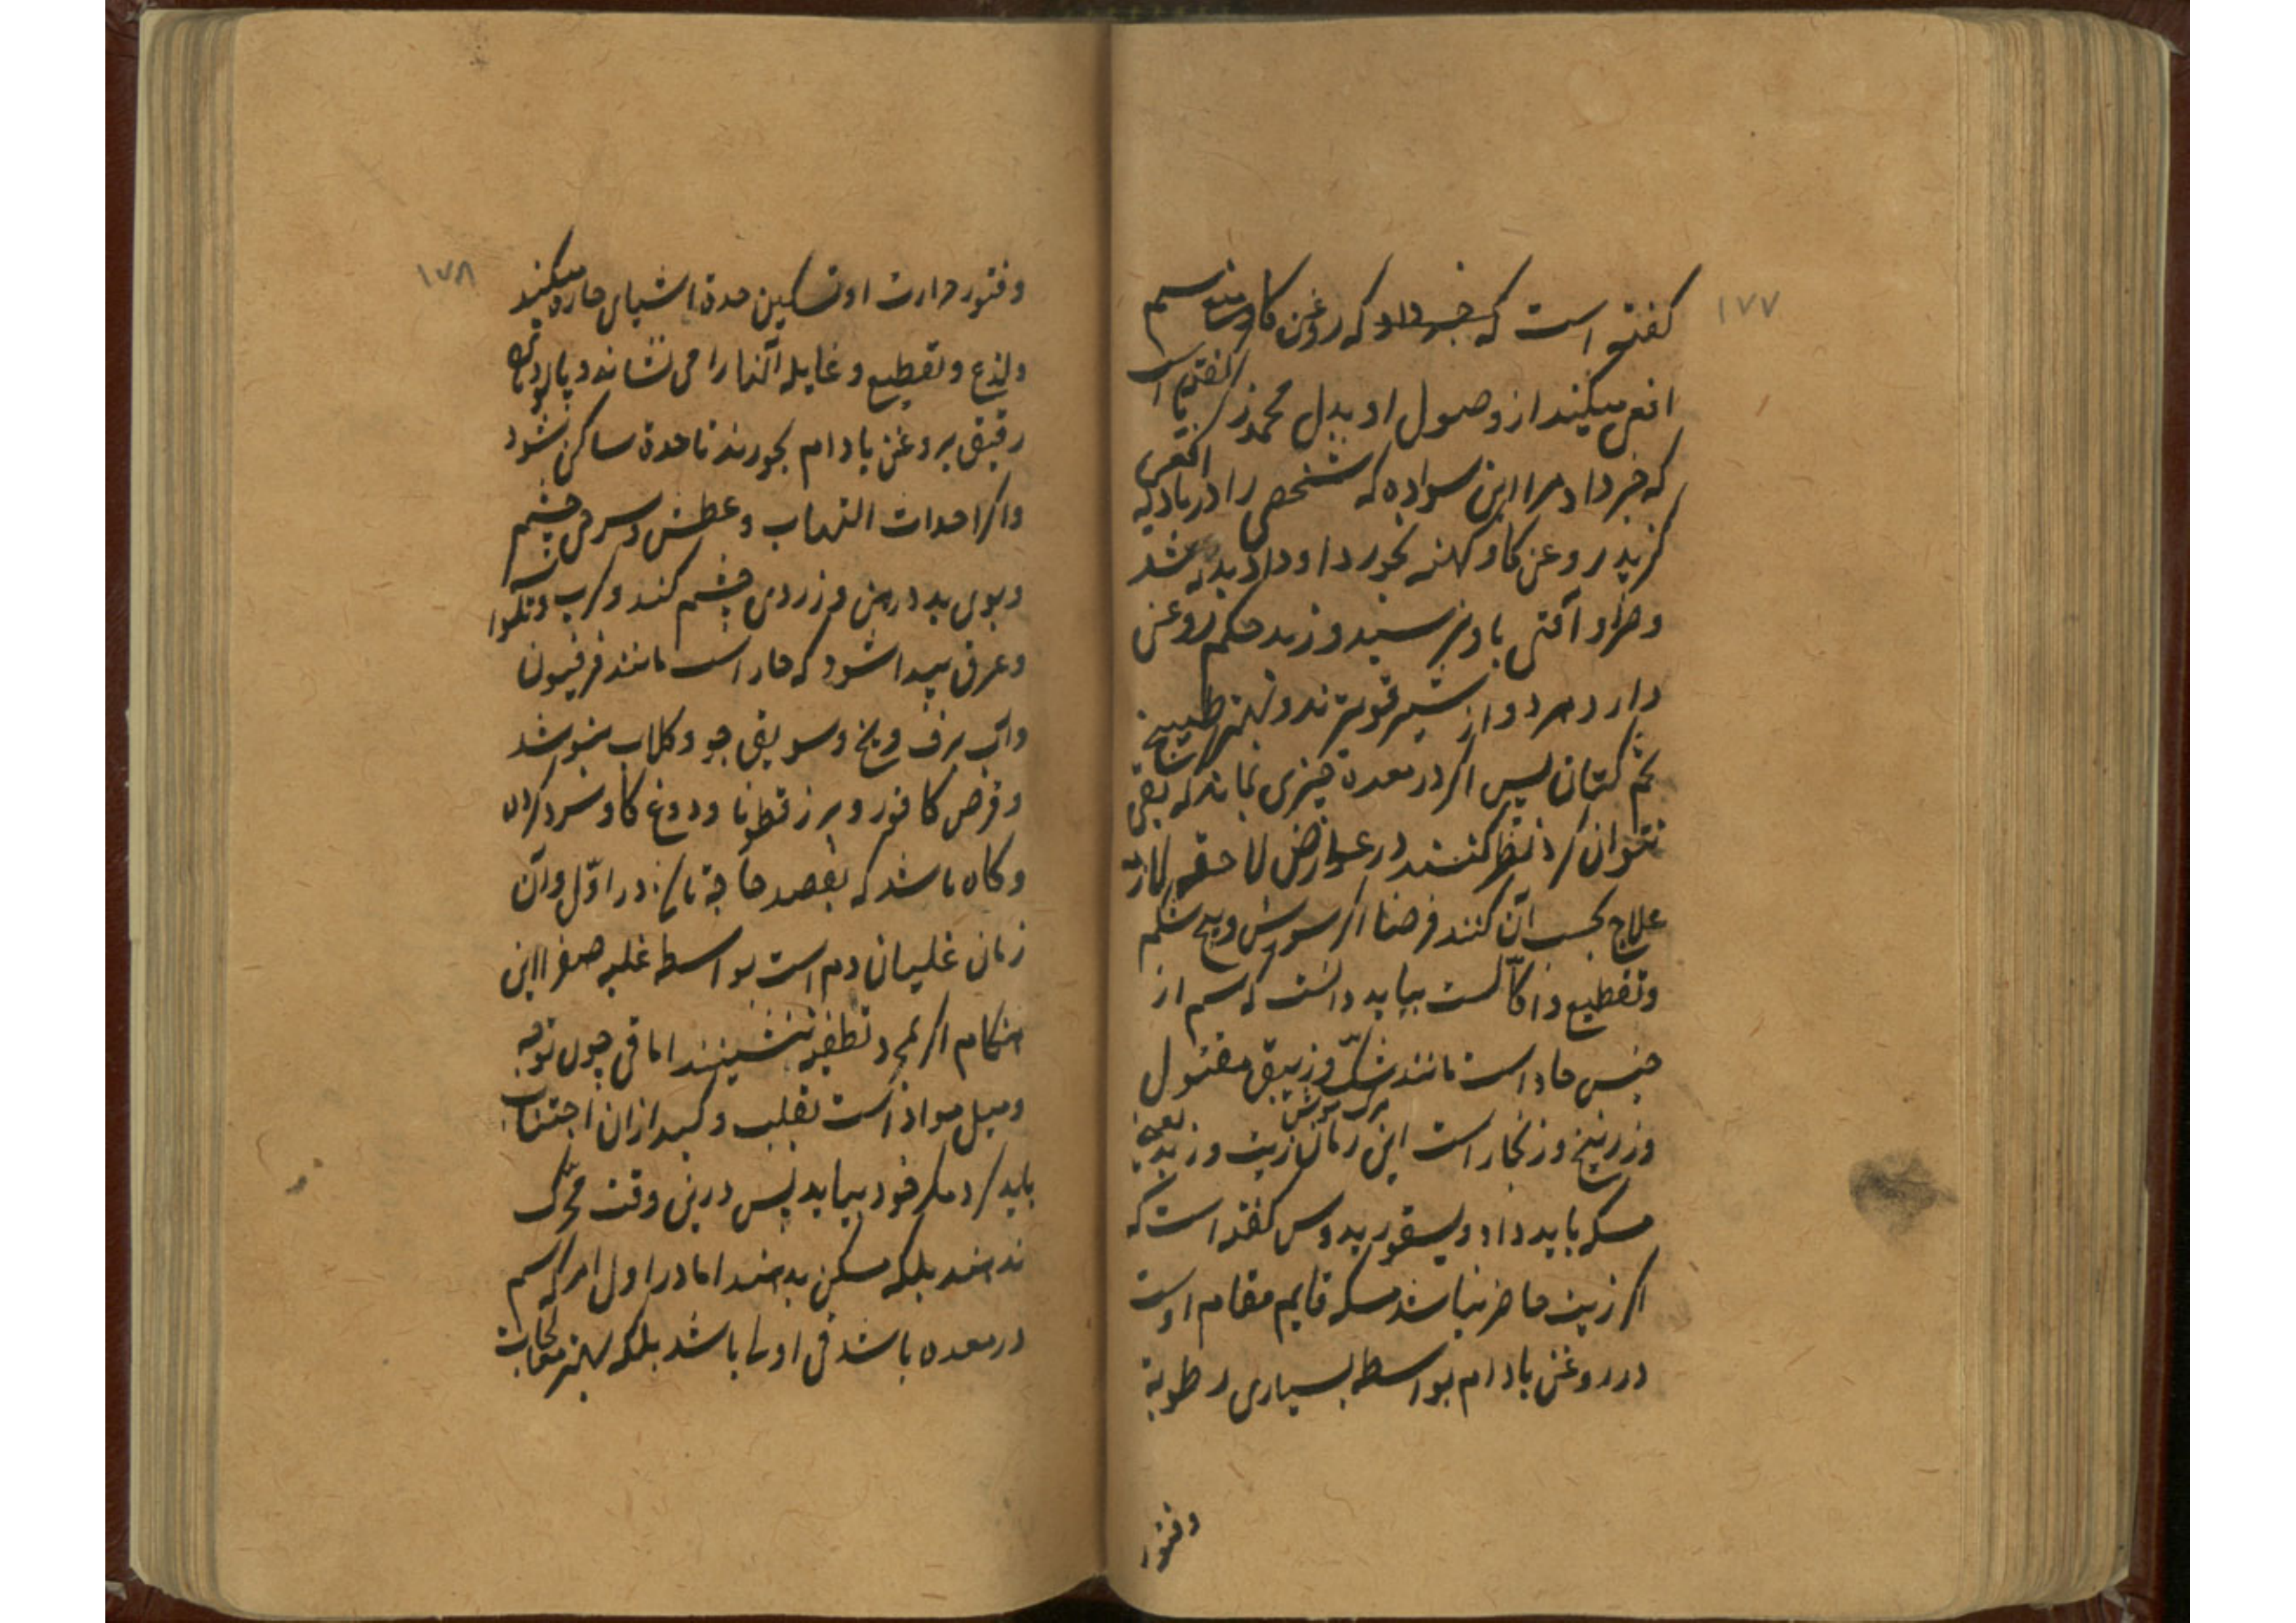 ١٧٧
گفته است که خبر داد که روغن کاو منع سم
افعی میکند از وصول او بدل محمد زکریا گفته است
که خبر داد مرا ابن سواده که شخصی را در بادیه افعی
گزید روغن کاو کهنه بخورد او داد بد نشد
و ضرر و آفتی باو نرسید و زبد حکم روغن
دارد هر دو از شیر قویترند و بهتر طبیخ
تخم کتان پس اگر در معده چیزی نماند که بقی
نتوان کرد نظر کنند در عوارض لاحقه
علاج بحسب آن کنند فرضا اگر سوزش و پیچ شکم
و تقطیع و اکالست بباید دانست که سم از
جنس حاد است مانند شک مرک موش و زیبق مقتول
و زرنیخ و زنجار است این زمان زیت و زبد یعنی
مسکه باید داد و یسقوریدوس گفته است که
اگر زیت حاضر نباشد مسکه قایم مقام اوست
در روغن بادام بواسطه بسیاری رطوبة
وفتور
١٧٨
وفتور حرارت او تسکین حدة اشیای حاره میکند
ولذع و تقطیع و غایله آنها را می نشاند و پالوده
رقیق بروغن بادام بخورند تا حدة ساکن شود
و اگر احداث التهاب و عطش و سرخی چشم
و بوی بد دهن و زردی چشم کند و کرب و
وعرق پیدا شود که حار است مانند فرفیون
و آب برف و یخ و سویق جو و کلاب بنوشد
و قرص کافور و بزر قطونا و دوغ کاو سرد کرده
و کاه باشد که بفصد حاجة در اول و آن
زمان غلیان دم است بواسطه غلبه صفرا این
هنکام اگر بمجرد تطفیه ننشیند اما قی چون توجه
و میل مواد است بقلب و کبد ازان اجتناب
باید کرد مکر خود بیاید پس درین وقت محرک
ندهند بلکه مسکن بدهند اما در اول امر که سم
در معده باشد قی اولی باشد بلکه بهتر معالجات